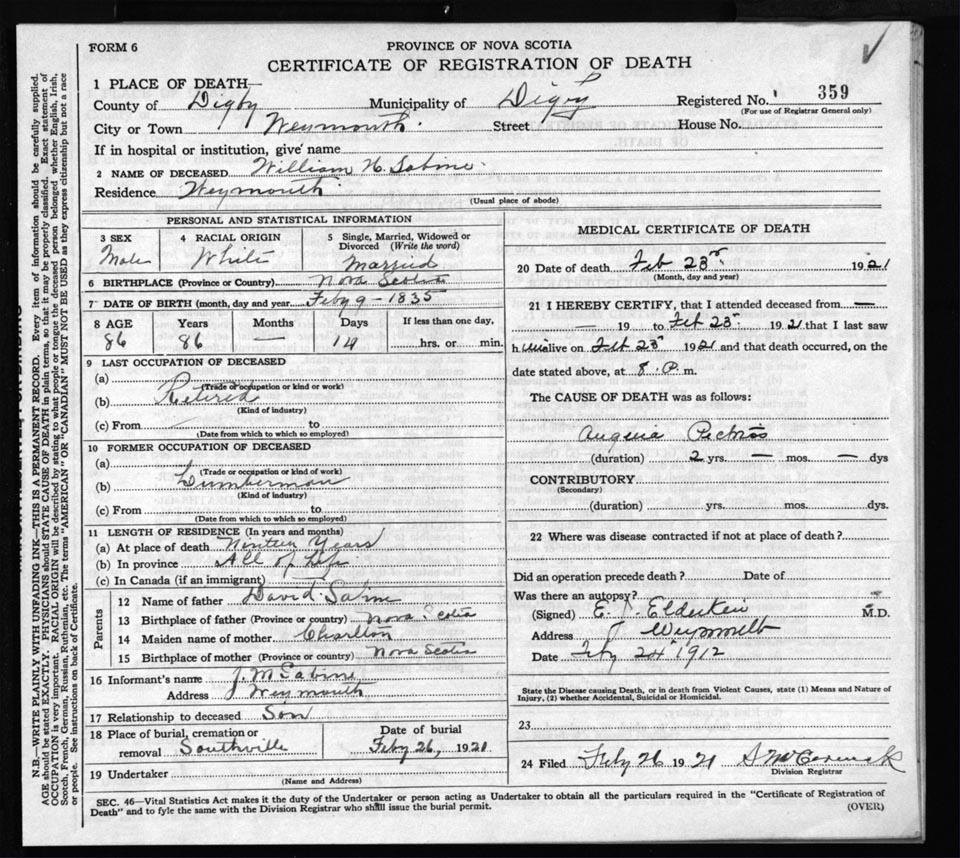 FORM 6
PROVINCE OF NOVA SCOTIA
CERTIFICATE OF REGISTRATION OF DEATH
1 PLACE OF DEATH
County of Digby Municipality of Digby Registered No. 359
(For use of Registrar General only)
City or Town Weymouth Street House No.
If in hospital or institution, give name
2 NAME OF DECEASED William H. Sabine
Residence Weymouth
(Usual place of abode)
PERSONAL AND STATISTICAL INFORMATION
3 SEX 4 RACIAL ORIGIN 5 Single, Married, Widowed or Divorced (Write the word)
Male White Married
6 BIRTHPLACE (Province or Country) Nova Scotia
7 DATE OF BIRTH (month, day and year) Feby 9 - 1835
8 AGE Years Months Days If less than one day,
86 86 — 14 hrs. or min.
9 LAST OCCUPATION OF DECEASED
(a)
(Trade or occupation or kind of work)
(b) Retired
(Kind of industry)
(c) From to
(Date from which to which so employed)
10 FORMER OCCUPATION OF DECEASED
(a)
(Trade or occupation or kind of work)
(b) Lumberman
(Kind of industry)
(c) From to
(Date from which to which so employed)
11 LENGTH OF RESIDENCE (In years and months)
(a) At place of death Years
(b) In province All of life
(c) In Canada (if an immigrant)
Parents
12 Name of father David Sabine
13 Birthplace of father (Province or country) Nova Scotia
14 Maiden name of mother Charlton
15 Birthplace of mother (Province or country) Nova Scotia
16 Informant's name J. M Sabine
Address Weymouth
17 Relationship to deceased Son
18 Place of burial, cremation or removal Southville Date of burial Feby 26, 1921
19 Undertaker
(Name and Address)
MEDICAL CERTIFICATE OF DEATH
20 Date of death Feb 23rd 1921
(Month, day and year)
21 I HEREBY CERTIFY, that I attended deceased from —
— 19 to Feb 23rd 1921 that I last saw
h im alive on Feb 23rd 1921 and that death occurred, on the
date stated above, at 8. P. m.
The CAUSE OF DEATH was as follows:
Angina Pectoris
(duration) 2 yrs. — mos. — dys
CONTRIBUTORY
(Secondary)
(duration) yrs. mos. dys.
22 Where was disease contracted if not at place of death?
Did an operation precede death? Date of
Was there an autopsy?
(Signed) Elderkin M.D.
Address Weymouth
Date Feby 24th 1912
State the Disease causing Death, or in death from Violent Causes, state (1) Means and Nature of Injury, (2) whether Accidental, Suicidal or Homicidal.
23
24 Filed Feby 26 1921
Division Registrar
SEC. 46—Vital Statistics Act makes it the duty of the Undertaker or person acting as Undertaker to obtain all the particulars required in the "Certificate of Registration of
Death" and to fyle the same with the Division Registrar who shall issue the burial permit.
(OVER)
N.B.—WRITE PLAINLY WITH UNFADING INK—THIS IS A PERMANENT RECORD. Every item of information should be carefully supplied.
AGE should be stated EXACTLY. PHYSICIANS should STATE CAUSE OF DEATH in plain terms, so that it may be properly classified. Exact statement of
OCCUPATION is very important. RACIAL ORIGIN will be described by stating to what people or tongue the deceased person belonged, whether English, Irish,
Scotch, French, German, Russian, Ruthenian, etc. The terms "AMERICAN" OR "CANADIAN" MUST NOT BE USED as they express citizenship but not a race
or people. See instructions on back of Certificate.